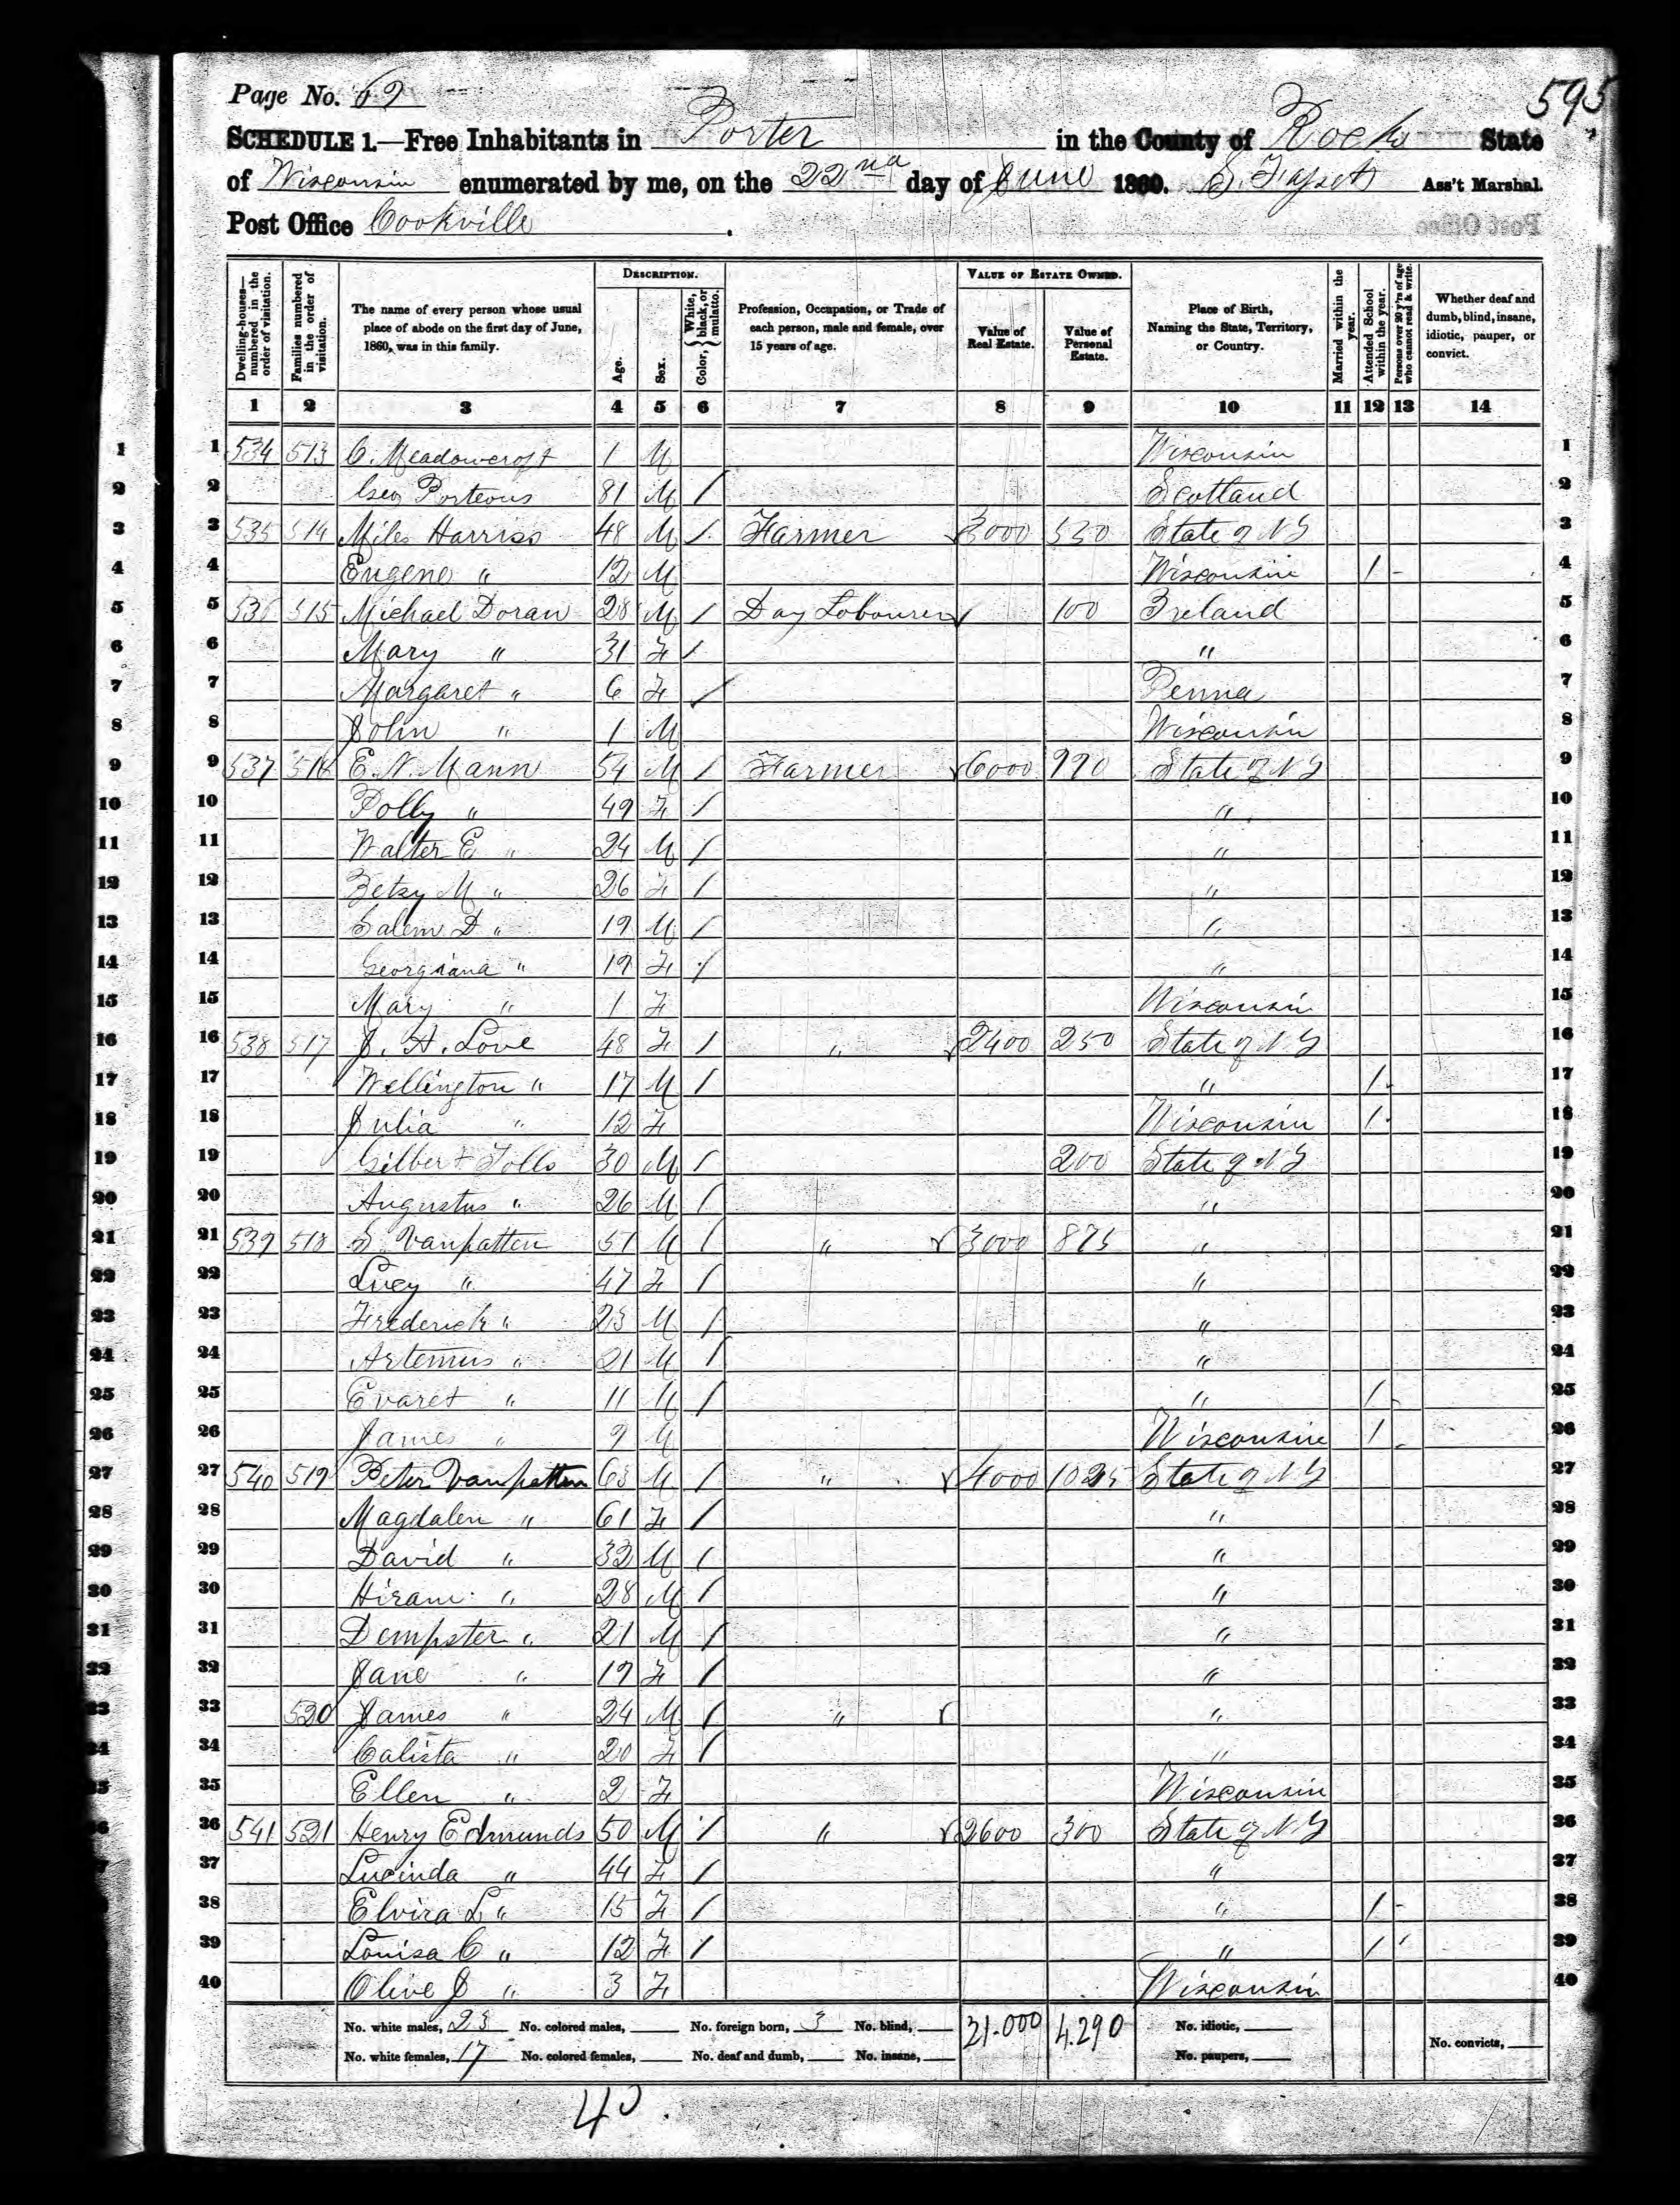 595
Page No. 69
SCHEDULE 1.—Free Inhabitants in Porter in the County of Rock State
of Wisconsin enumerated by me, on the 22nd day of June 1860. Ass't Marshal.
Post Office Cookville
Description. Value of Estate Owned.
Dwelling-houses—numbered in the order of visitation. Families numbered in the order of visitation. The name of every person whose usual place of abode on the first day of June, 1860, was in this family. Age. Sex. Color, { White, black, or mulatto. Profession, Occupation, or Trade of each person, male and female, over 15 years of age. Value of Real Estate. Value of Personal Estate. Place of Birth, Naming the State, Territory, or Country. Married within the year. Attended School within the year. Persons over 20 y'rs of age who cannot read & write. Whether deaf and dumb, blind, insane, idiotic, pauper, or convict.
1 2 3 4 5 6 7 8 9 10 11 12 13 14
1 534 513 C. Meadowcroft 1 M Wisconsin 1
2 Geo Porteous 81 M / Scotland 2
3 535 514 Miles Harriss 48 M / Farmer 3000 530 State of N Y 3
4 Eugene " 12 M Wisconsin / 4
5 536 515 Michael Doran 28 M / Day Labourer 100 Ireland 5
6 Mary " 31 F / " 6
7 Margaret " 6 F / Penna 7
8 John " 1 M Wisconsin 8
9 537 516 E. N. Mann 54 M / Farmer 6000 990 State of N Y 9
10 Polly " 49 F / " 10
11 Walter E " 24 M / " 11
12 Betsy M " 26 F / " 12
13 Salem D " 19 M / " 13
14 Georgiana " 19 F / " 14
15 Mary " 1 F Wisconsin 15
16 538 517 J. H. Love 48 F / " 2400 250 State of N Y 16
17 Wellington " 17 M / " / 17
18 Julia " 12 F Wisconsin / 18
19 Gilbert 30 M / 200 State of N Y 19
20 Augustus " 26 M / " 20
21 539 518 S. Vanpatten 51 M / " 3000 875 " 21
22 Lucy " 47 F / " 22
23 Frederick " 23 M / " 23
24 Artemus " 21 M / " 24
25 Evaret " 11 M / " / 25
26 James " 9 M Wisconsin / 26
27 540 519 Peter Vanpatten 63 M / " 4000 1025 State of N Y 27
28 Magdalen " 61 F / " 28
29 David " 32 M / " 29
30 Hiram " 28 M / " 30
31 Dempster " 21 M / " 31
32 Jane " 19 F / " 32
33 520 James " 24 M / " " 33
34 Calista " 20 F / " 34
35 Ellen " 2 F Wisconsin 35
36 541 521 Henry Edmunds 50 M / " 2600 300 State of N Y 36
37 Lucinda " 44 F / " 37
38 Elvira L " 15 F / " / 38
39 Louisa C " 12 F / " / 39
40 Olive J " 3 F Wisconsin 40
No. white males, 23 No. colored males, No. foreign born, 3 No. blind, 21.000 4.290 No. idiotic,
No. white females, 17 No. colored females, No. deaf and dumb, No. insane, No. paupers, No. convicts,
40